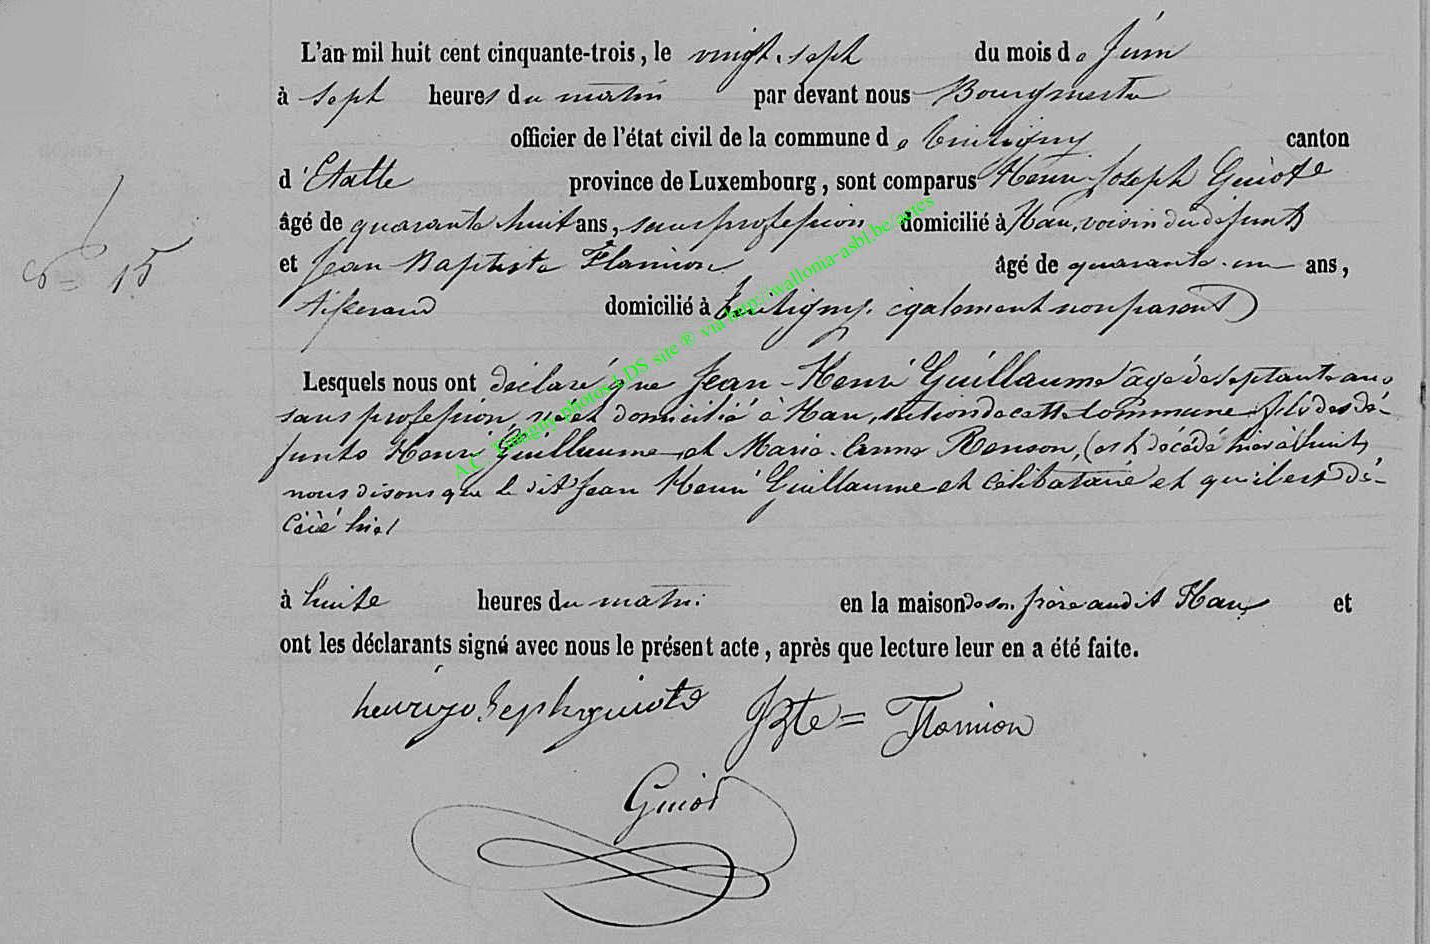 L'an mil huit cent cinquante-trois, le vingt-sept du mois de Juin
à sept heures du matin par devant nous Bourgmestre
officier de l'état civil de la commune de Tintigny canton
d'Etalle province de Luxembourg, sont comparus Henri-Joseph Guiote
âgé de quarante huit ans, sans profession domicilié à Han, voisin du défunt
et Jean Baptiste Flamion âgé de quarante-un ans,
tisserand domicilié à Tintigny également non parent
N° 15
Lesquels nous ont déclaré que Jean-Henri Guillaume âgé de septante ans
sans profession, né et domicilié à Han, section de cette Commune, fils des dé-
funts Henri Guillaume et Marie-Anne Renson, (est décédé hier à huit)
nous disons que le dit Jean Henri Guillaume est célibataire et qu'il est dé-
cédé hier
à huite heures du matin en la maison de son frère audit Han, et
ont les déclarants signé avec nous le présent acte, après que lecture leur en a été faite.
henri joseph guiote JBte = Flamion
Guiot
A.C. Tintigny photos LDS site ® via http://wallonia-asbl.be/actes